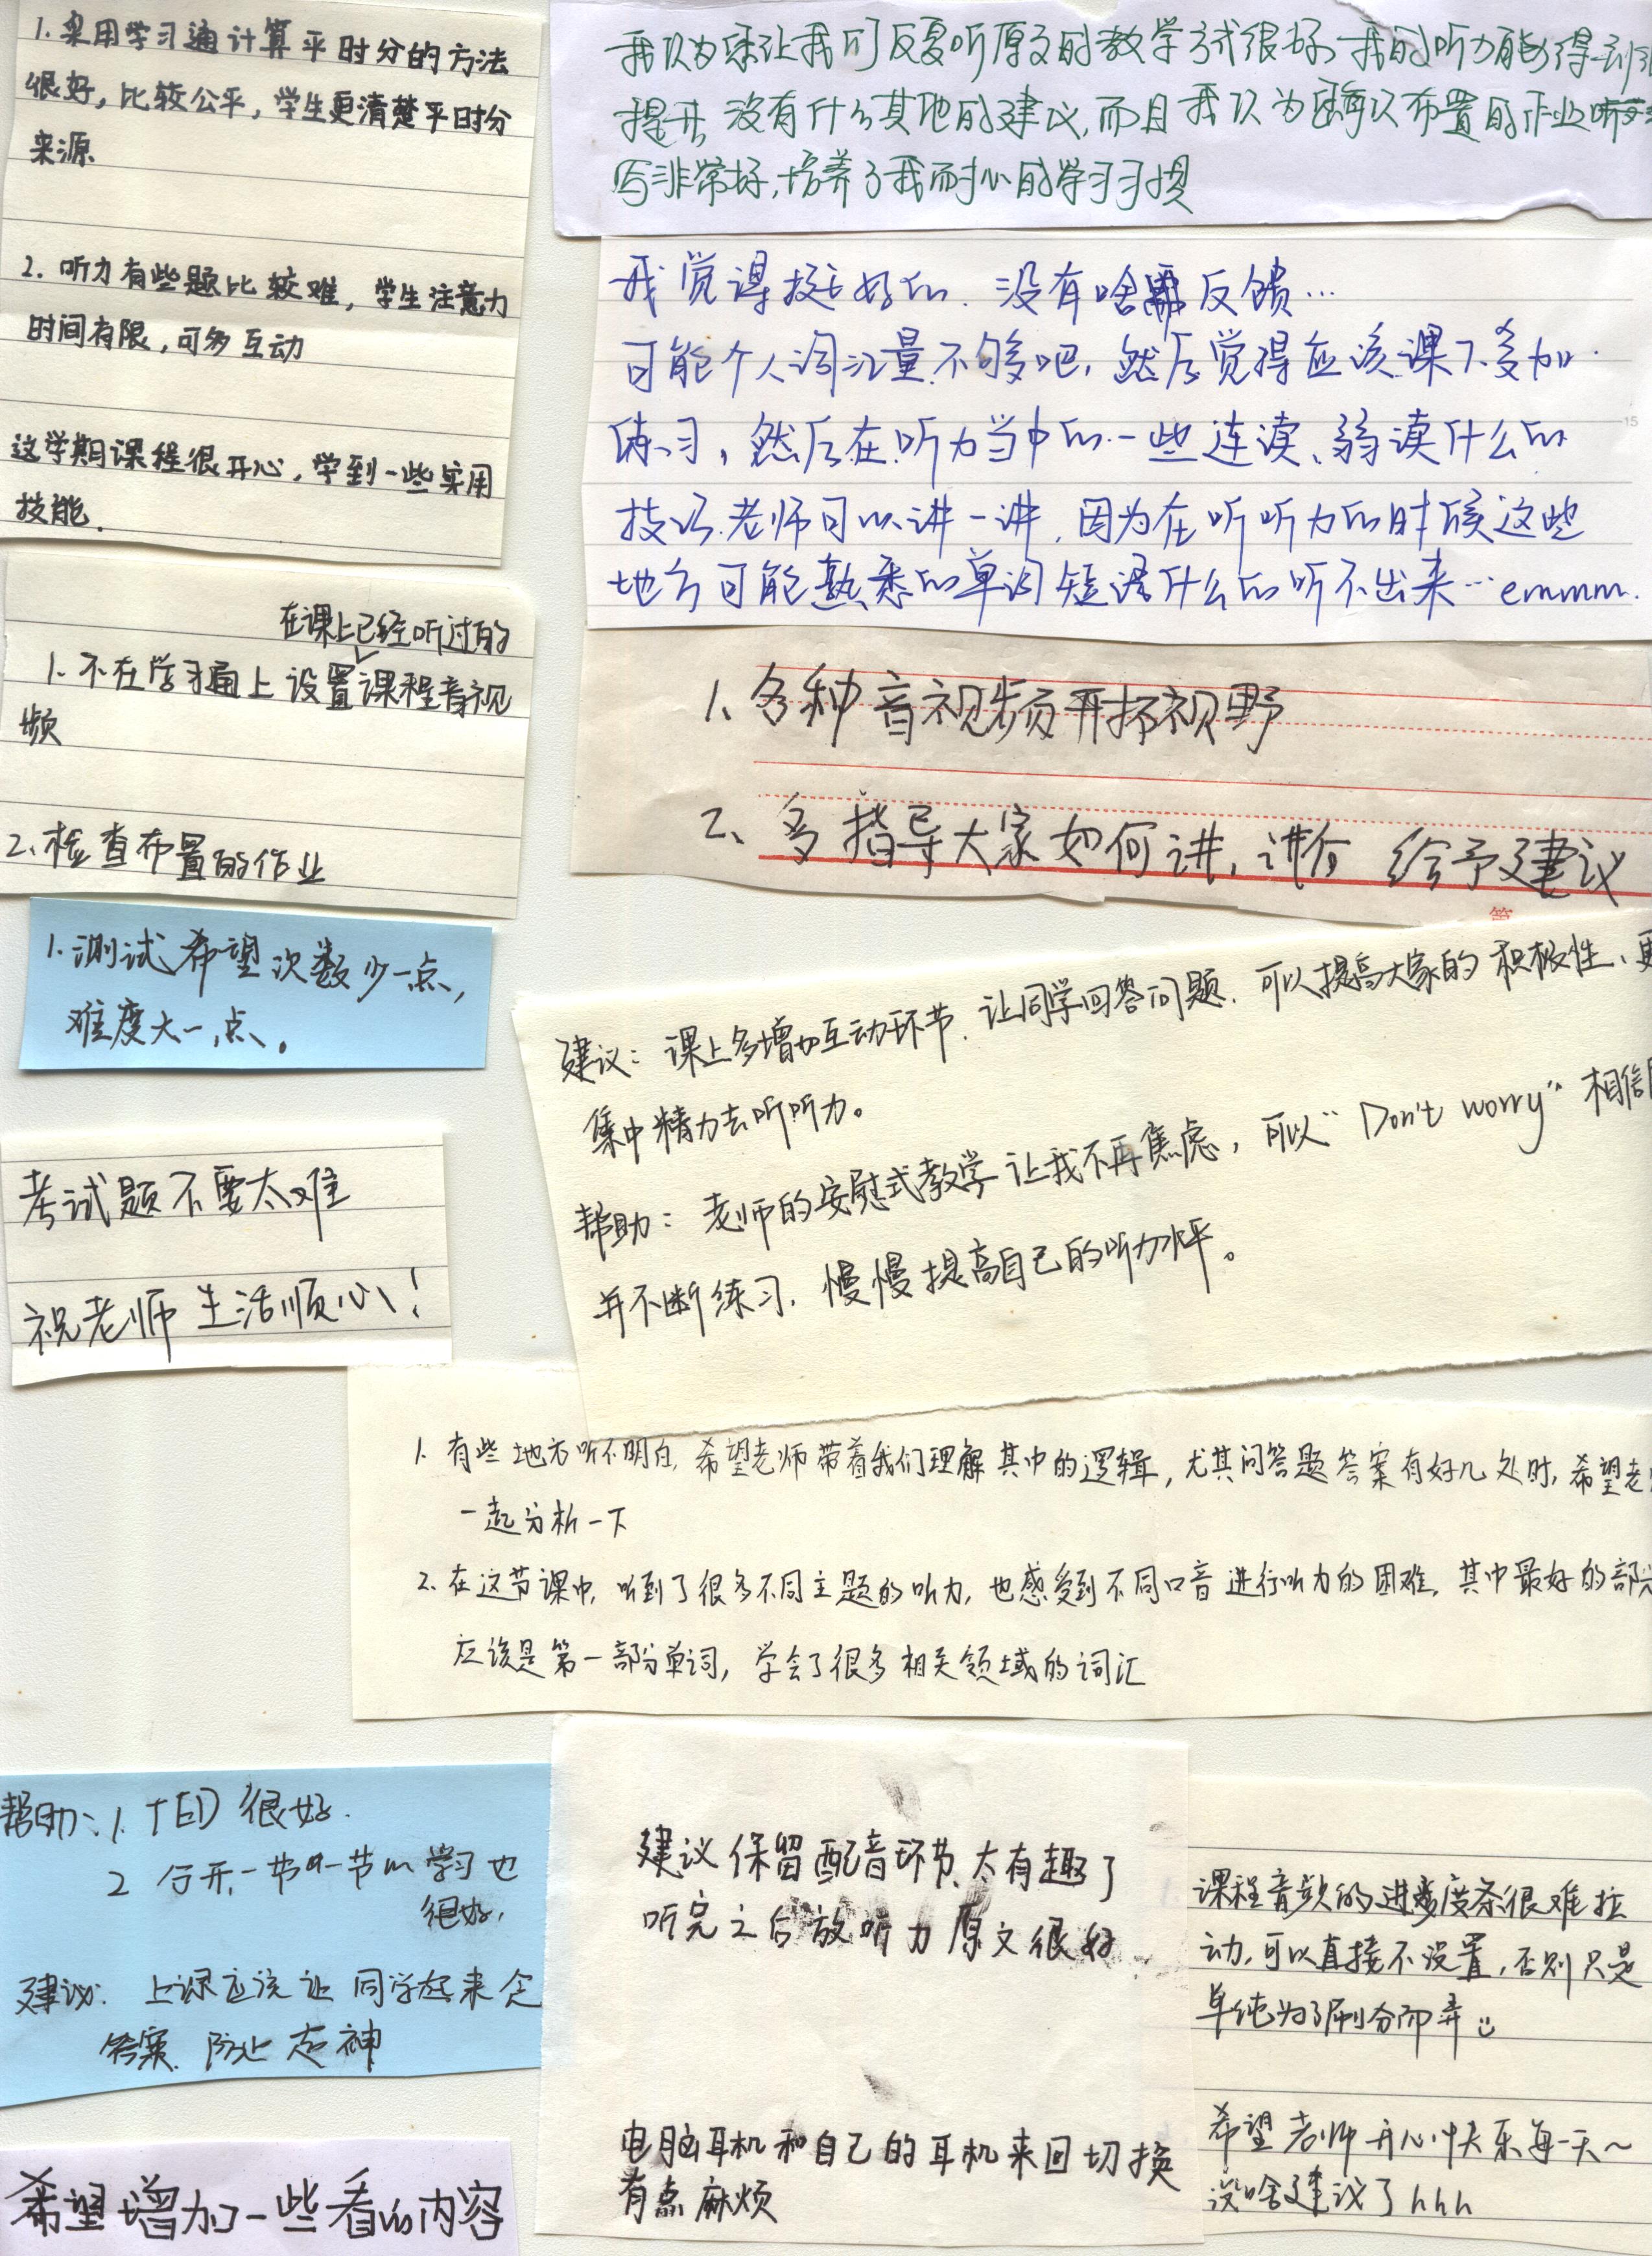 1.采用学习通计算平时分的方法
很好,比较公平,学生更清楚平时分
来源.
2.听力有些题比较难,学生注意力
时间有限,可多互动
这学期课程很开心,学到一些实用
技能.
我认为 让我们反复听原文的教学方式很好,我的听力能够得到
提升,没有什么其他的建议,而且我认为 布置的作业听
写非常好,培养了我耐心的学习习惯
我觉得挺好的.没有啥 反馈…
可能个人词汇量不够吧,然后觉得应该课下多加
练习,然后在听力当中的一些连读、弱读什么的
技巧.老师可以讲一讲,因为在听听力的时候这些
地方可能熟悉的单词短语什么的听不出来…emmm.
在课上已经听过的
1.不在学习通上设置课程音视
频
2.检查布置的作业
1、各种音视频开拓视野
2、多指导大家如何讲,讲后 给予建议
第
15
1.测试希望次数少一点,
难度大一点。
建议:课上多增加互动环节,让同学回答问题,可以提高大家的积极性、更
集中精力去听听力。
帮助:老师的安慰式教学让我不再焦虑,可以“Don't worry”相信
并不断练习,慢慢提高自己的听力水平。
考试题不要太难
祝老师生活顺心!
1.有些地方听不明白,希望老师带着我们理解其中的逻辑,尤其问答题答案有好几处时,希望老
一起分析一下
2.在这节课中,听到了很多不同主题的听力,也感受到不同口音进行听力的困难,其中最好的部分
应该是第一部分单词,学会了很多相关领域的词汇
帮助:1.TED很好.
2 分开一节的一节的学习也
很好.
建议:上课应该让同学起来念
答案.防止走神
建议保留配音环节,太有趣了
听完之后放听力原文很好
电脑耳机和自己的耳机来回切换
有点麻烦
课程音频的进度条很难拉
动,可以直接不设置,否则只是
单纯为了刷分而弄
希望老师开心快乐每一天~
没啥建议了hhh
希望增加一些看的内容